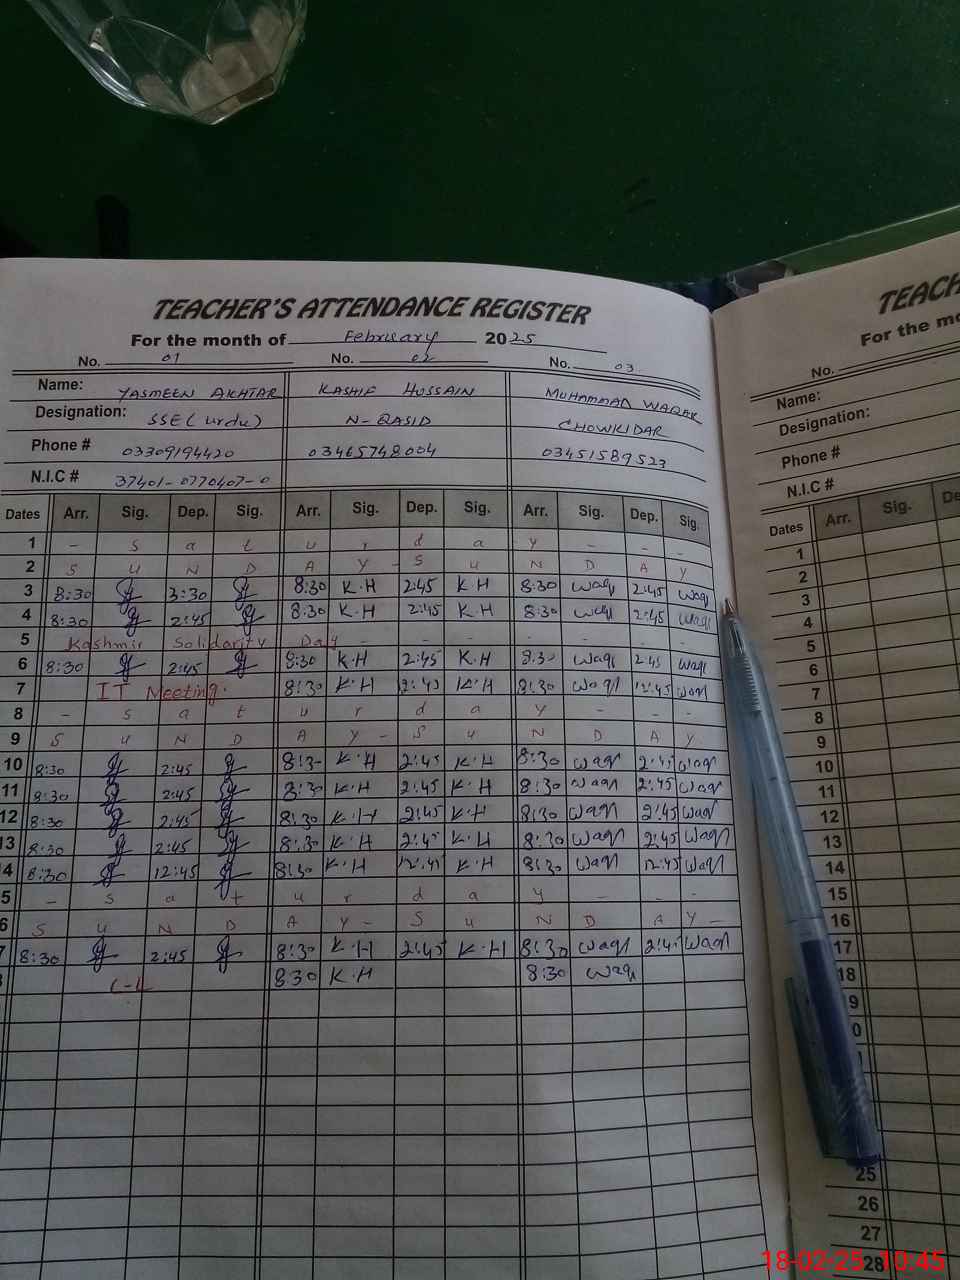 TEACHER'S ATTENDANCE REGISTER
For the month of February 2025
No. 01 No. 02 No. 03
Name: YASMEEN AKHTAR KASHIF HUSSAIN MUHAMMAD WAQAR
Designation: SSE (urdu) N-QASID CHOWKIDAR
Phone # 03309194420 03465748004 03451589523
N.I.C # 37401-0770407-0
Dates Arr. Sig. Dep. Sig. Arr. Sig. Dep. Sig. Arr. Sig. Dep. Sig.
1 - S a t u r d a y - - -
2 S U N D A Y - S u N D A y
3 8:30 3:30 8:30 K.H 2:45 K.H 8:30 waqr 2:45 waqr
4 8:30 2:45 8:30 K.H 2:45 K.H 8:30 waqr 2:45 waqr
5 Kashmir Solidarity Day - - - - - - -
6 8:30 2:45 8:30 K.H 2:45 K.H 8:30 waqr 2:45 waqr
7 IT Meeting. 8:30 K.H 12:45 K.H 8:30 waqr 12:45 waqr
8 - S a t u r d a y - - -
9 S u N D A y - S u N D A y
10 8:30 2:45 8:30 K.H 2:45 K.H 8:30 waqr 2:45 waqr
11 8:30 2:45 8:30 K.H 2:45 K.H 8:30 waqr 2:45 waqr
12 8:30 2:45 8:30 K.H 2:45 K.H 8:30 waqr 2:45 waqr
13 8:30 2:45 8:30 K.H 2:45 K.H 8:30 waqr 2:45 waqr
4 8:30 12:45 8:30 K.H 12:45 K.H 8:30 waqr 12:45 waqr
5 - s a t u r d a y - - -
6 S u N D A y - S u N D A y -
7 8:30 2:45 8:30 K.H 2:45 K.H 8:30 waqr 2:45 waqr
C-L 8:30 K.H 8:30 waqr
TEACH
For the mo
No.
Name:
Designation:
Phone #
N.I.C #
Dates Arr. Sig. De
1
2
3
4
5
6
7
8
9
10
11
12
13
14
15
16
17
18
9
0
25
26
27
28
18-02-25 10:45